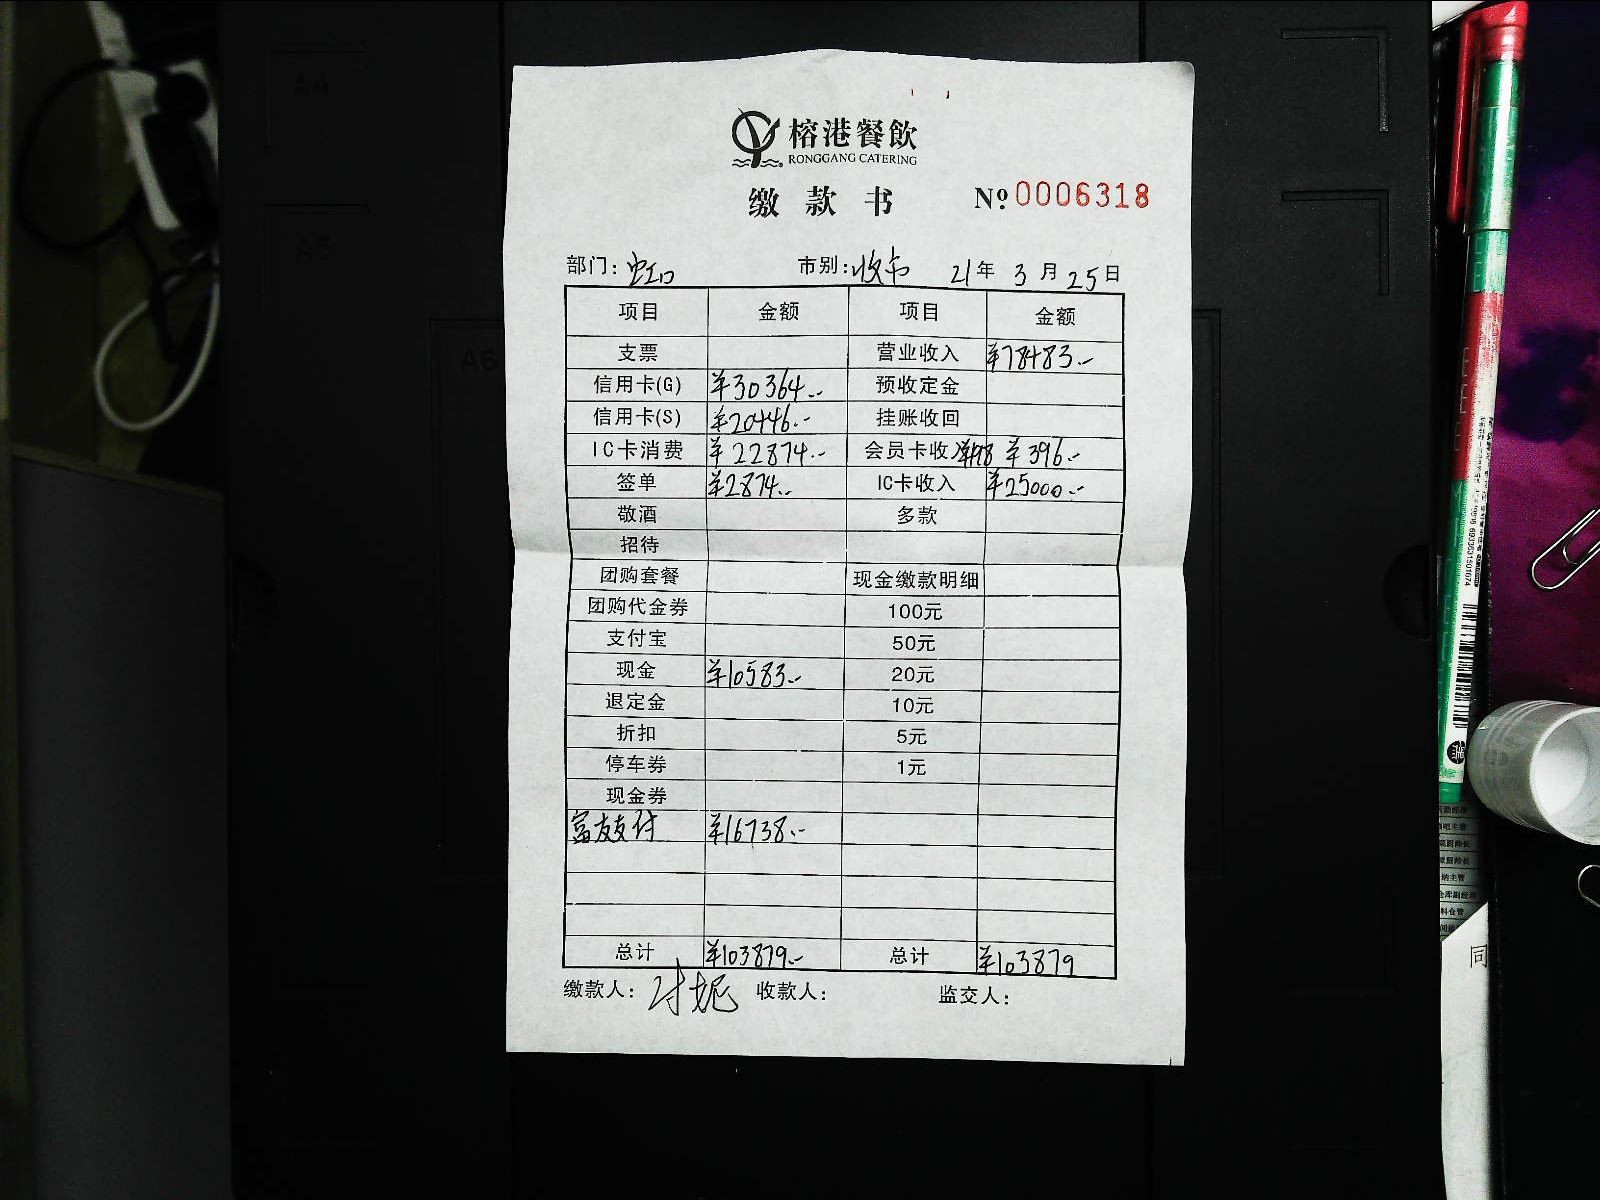 榕港餐飲
RONGGANG CATERING
缴款书 № 0006318
部门: 虹口 市别: 收市 21年 3月 25日
项目 金额 项目 金额
支票 营业收入 ¥78483.-
信用卡(G) ¥30364.- 预收定金
信用卡(S) ¥20446.- 挂账收回
IC卡消费 ¥22874.- 会员卡收入 ¥396.-
签单 ¥2874.- IC卡收入 ¥25000.-
敬酒 多款
招待
团购套餐 现金缴款明细
团购代金券 100元
支付宝 50元
现金 ¥10583.- 20元
退定金 10元
折扣 5元
停车券 1元
现金券
富友支付 ¥16738.-
总计 ¥103879.- 总计 ¥103879
缴款人: 收款人: 监交人:
A5
A6
同